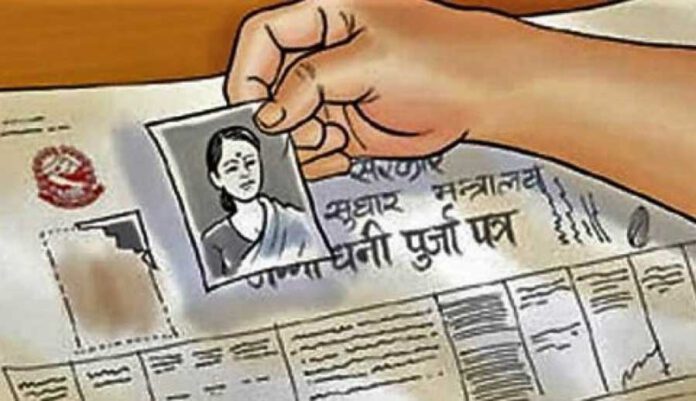 सरकार
सुधार मन्त्रालय
धनी पुर्जा पत्र